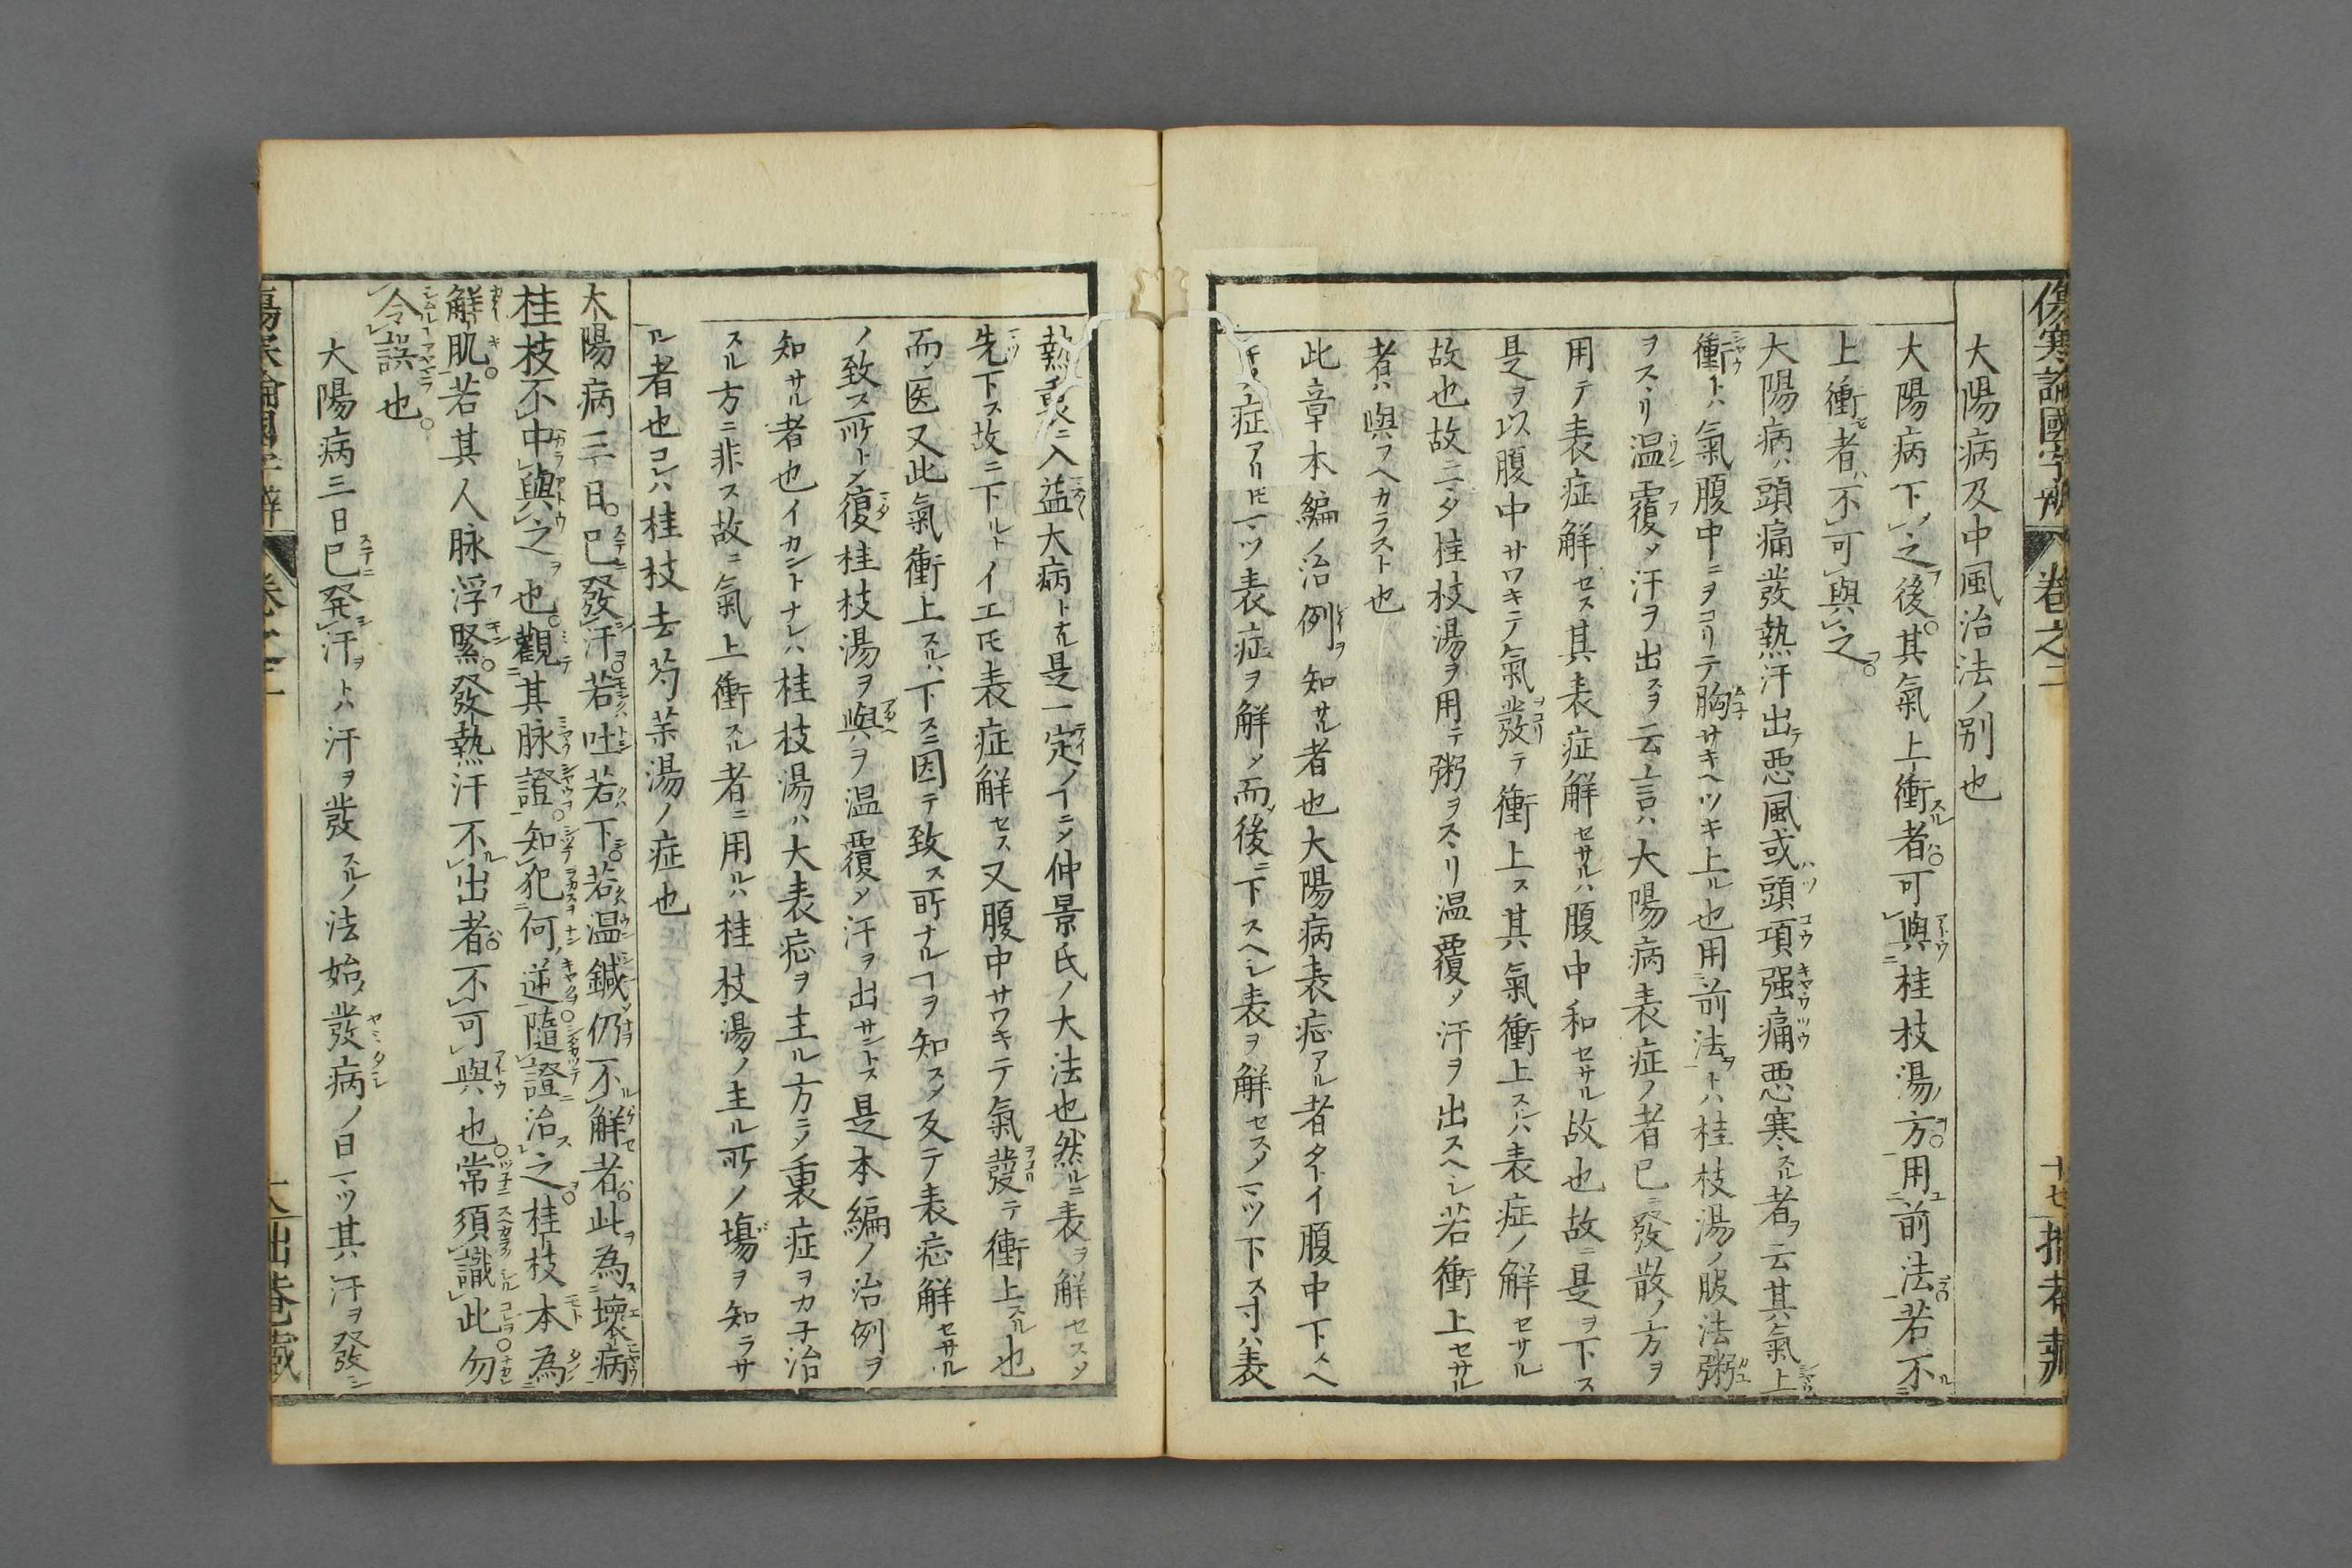 傷寒論國字辨 卷之二 十七
大陽病及中風治法ノ別也
大陽病下之後其氣上衝者可與桂枝湯方用前法若不
上衝者不可與之
大陽病ハ頭痛發熱汗出テ悪風或ハ頭項强痛悪寒スル者ヲ云其氣上
衝トハ氣腹中ニヲコリテ胸サキヘツキ上ル也用前法トハ桂枝湯ノ服法粥
ヲスヽリ温覆メ汗ヲ出スヲ云言ハ大陽病表症ノ者已ニ發散ノ方ヲ
用テ表症解セス其表症解セサルハ腹中和セサル故也故ニ是ヲ下ス
是ヲ以腹中サワキテ氣發テ衝上ス其氣衝上スレハ表症ノ解セサル
故也故ニマタ桂枝湯ヲ用テ粥ヲスヽリ温覆メ汗ヲ出スヘシ若衝上セサル
者ハ與フヘカラスト也
此章本編ノ治例ヲ知サル者也大陽病表症アル者タトイ腹中下スヘ
キノ症アリ𪜈マツ表症ヲ解メ而後ニ下スヘシ表ヲ解セスメマツ下ス寸ハ表
熱裏ニ入益大病トナル是一定ノヿニメ仲景氏ノ大法也然ルニ表ヲ解セスメ
先下ス故ニ下ルトイエ𪜈表症解セス又腹中サワキテ氣發テ衝上スル也
而メ医又此氣衝上スルハ下スニ因テ致ス所ナルヿヲ知スメ反テ表症解セサル
ノ致ス所トメ復桂枝湯ヲ與ヘヲ温覆メ汗ヲ出サントス是本編ノ治例ヲ
知サル者也イカントナレハ桂枝湯ハ大表症ヲ主ル方ニメ裏症ヲカ子治
スル方ニ非ス故ニ氣上衝スル者ニ用ルハ桂枝湯ノ主ル所ノ場ヲ知ラサ
ル者也コレハ桂枝去芍薬湯ノ症也
太陽病三日已發汗若吐若下若温鍼仍不解者此為壞病
桂枝不中與之也觀其脉證知犯何逆隨證治之桂枝本為
解肌若其人脉浮緊發熱汗不出者不可與也常須識此勿
令誤也
大陽病三日已発汗ヲトハ汗ヲ發スルノ法始メ發病ノ日マツ其汗ヲ發シ